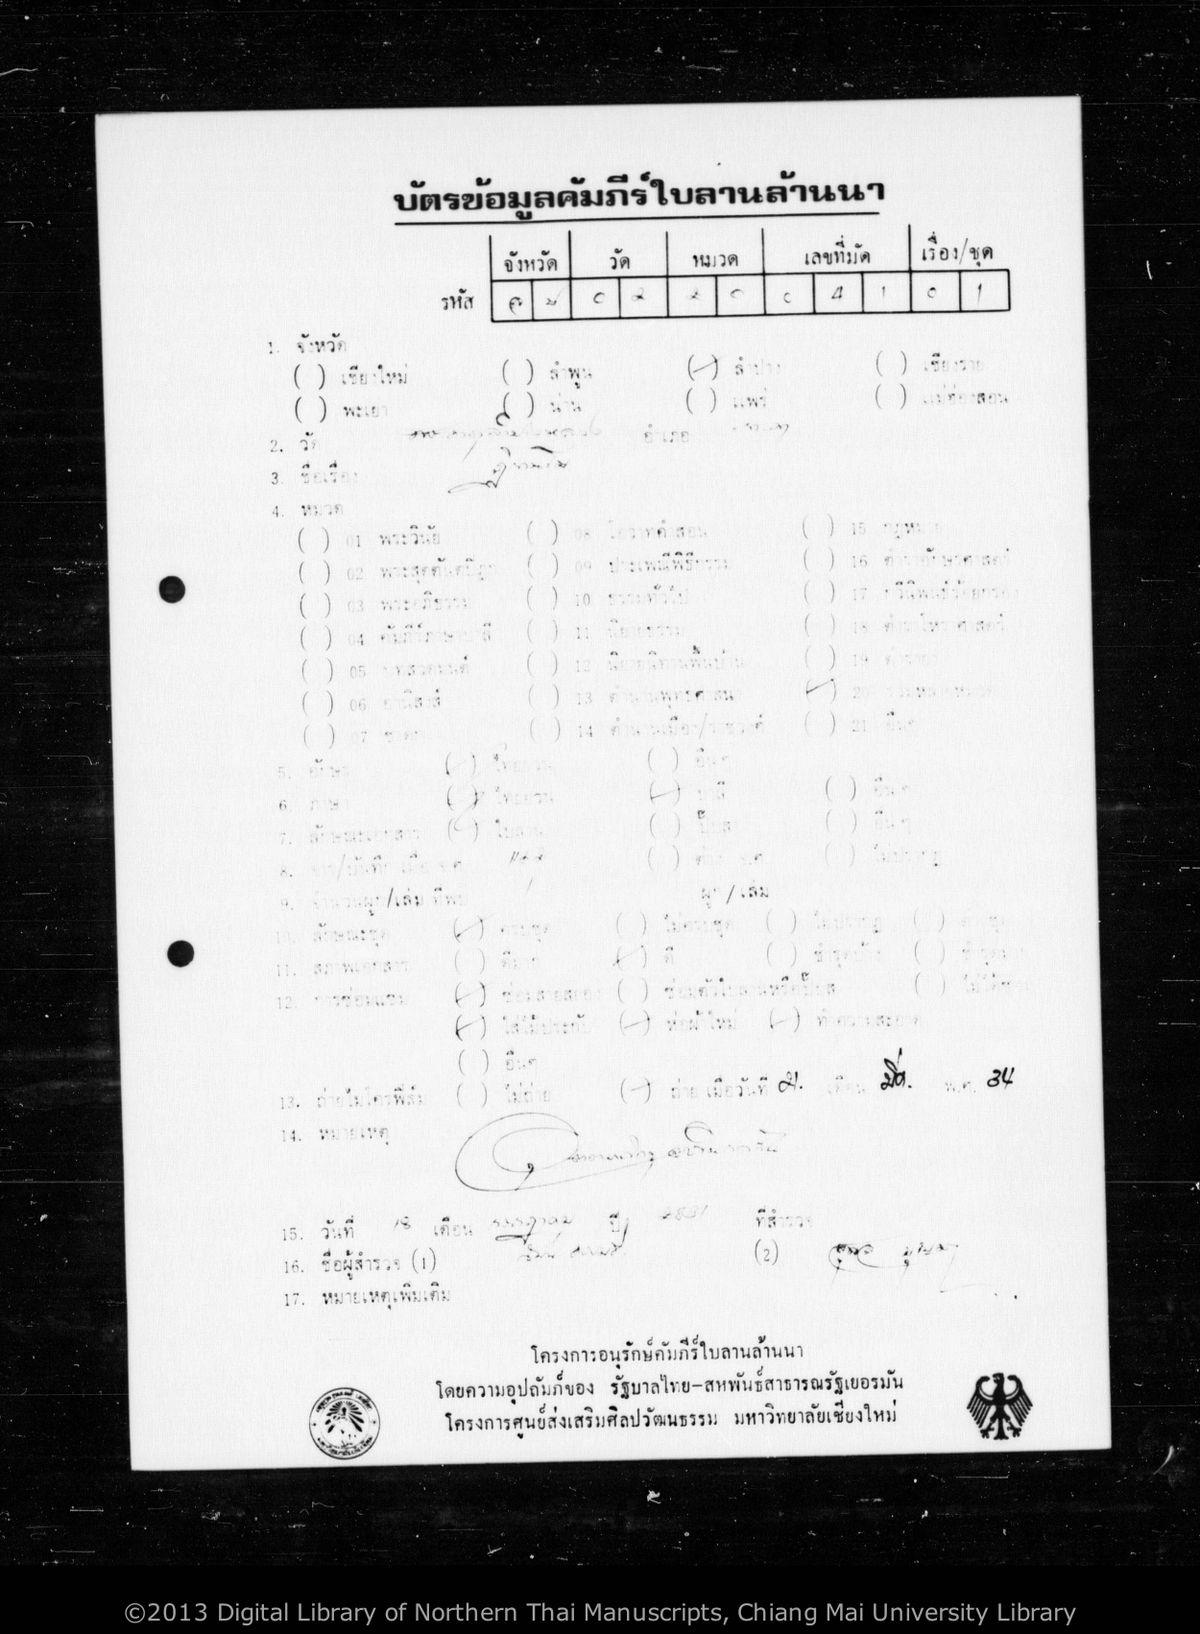 บัตรข้อมูลคัมภีร์ใบลานล้านนา
จังหวัด วัด หมวด เลขที่มัด เรื่อง/ชุด
รหัส 0 1
1. จังหวัด
( ) เชียงใหม่ ( ) ลำพูน (✓) ลำปาง ( ) เชียงราย
( ) พะเยา ( ) น่าน ( ) แพร่ ( ) แม่ฮ่องสอน
2. วัด อำเภอ
3. ชื่อเรื่อง
4. หมวด
( ) 01 พระวินัย ( ) 08 โอวาทคำสอน ( ) 15 กฎหมาย
( ) 02 พระสุตตันตปิฎก ( ) 09 ประเพณีพิธีกรรม ( ) 16 ตำราอักษรศาสตร์
( ) 03 พระอภิธรรม ( ) 10 ธรรมทั่วไป ( ) 17 กวีนิพนธ์ร้อยกรอง
( ) 04 คัมภีร์ภาษาบาลี ( ) 11 นิยายธรรม ( ) 18 ตำราโหราศาสตร์
( ) 05 บทสวดมนต์ ( ) 12 นิยายนิทานพื้นบ้าน ( ) 19 ตำรายา
( ) 06 อานิสงส์ ( ) 13 ตำนานพุทธศาสนา (✓) 20 รวมหลายหมวด
( ) 07 ชาดก ( ) 14 ตำนานเมือง/ราชวงศ์ ( ) 21 อื่นๆ
5. อักษร (✓) ไทยยวน ( ) อื่นๆ
6. ภาษา (✓) ไทยยวน (✓) บาลี ( ) อื่นๆ
7. ลักษณะเอกสาร (✓) ใบลาน ( ) พับสา ( ) อื่นๆ
8. จาร/บันทึก เมื่อ จ.ศ. ( ) ( ) ไม่ปรากฏ
9. จำนวนผูก/เล่ม ที่พบ 1 ผูก/เล่ม
10. ลักษณะชุด (✓) ครบชุด ( ) ไม่ครบชุด ( ) ไม่ปรากฏ ( )
11. สภาพเอกสาร ( ) ดีมาก (✓) ดี ( ) ชำรุดบ้าง ( ) ชำรุดมาก
12. การซ่อมแซม (✓) ซ่อมสายสยอง ( ) ซ่อมตัวใบลานหรือพับสา ( ) ไม่ได้ซ่อม
(✓) ใส่ไม้ประกับ (✓) ห่อผ้าใหม่ (✓) ทำความสะอาด
( ) อื่นๆ
13. ถ่ายไมโครฟิล์ม ( ) ไม่ถ่าย (✓) ถ่าย เมื่อวันที่ 21. เดือน มิ.ย. พ.ศ. 34
14. หมายเหตุ
15. วันที่ 18 เดือน กรกฎาคม ปี 2531 ที่สำรวจ
16. ชื่อผู้สำรวจ (1) (2)
17. หมายเหตุเพิ่มเติม
โครงการอนุรักษ์คัมภีร์ใบลานล้านนา
โดยความอุปถัมภ์ของ รัฐบาลไทย-สหพันธ์สาธารณรัฐเยอรมัน
โครงการศูนย์ส่งเสริมศิลปวัฒนธรรม มหาวิทยาลัยเชียงใหม่
©2013 Digital Library of Northern Thai Manuscripts, Chiang Mai University Library